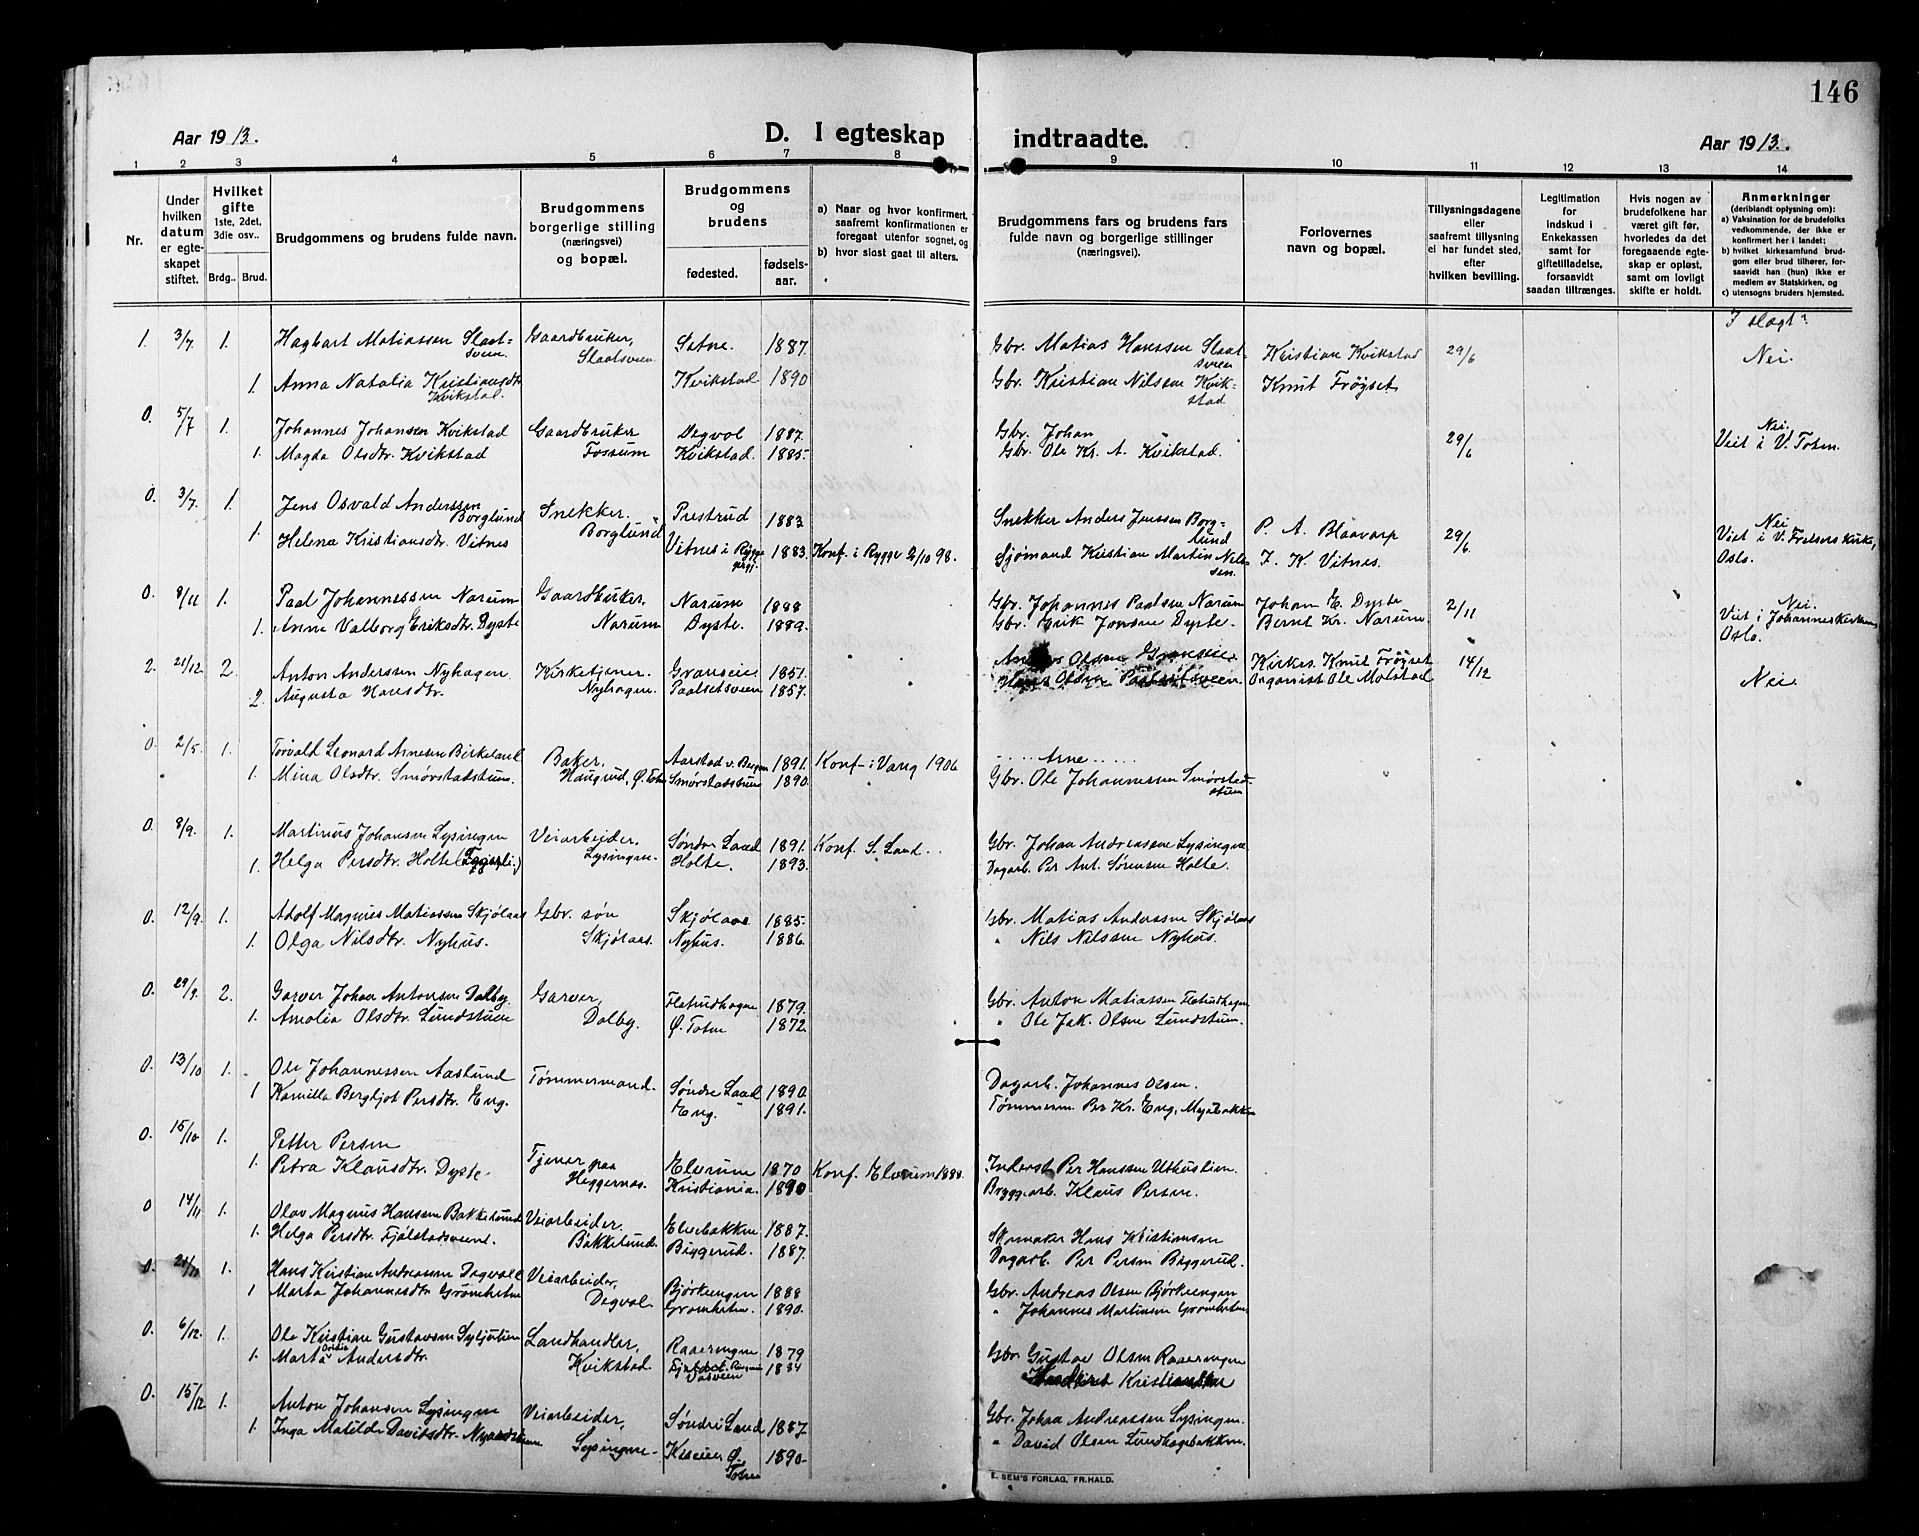 146
Aar 1913.
D. I egteskap
indtraadte.
Aar 1913.
1 2 3 4 5 6 7 8 9 10 11 12 13 14
Nr.
Under hvilken datum er egteskapet stiftet.
Hvilket gifte 1ste, 2det, 3die osv..
Brdg.. Brud.
Brudgommens og brudens fulde navn.
Brudgommens borgerlige stilling (næringsvei) og bopæl.
Brudgommens og brudens
fødested.
fødsels-aar.
a) Naar og hvor konfirmert, saafremt konfirmationen er foregaat utenfor sognet, og
b) hvor sidst gaat til alters.
Brudgommens fars og brudens fars fulde navn og borgerlige stillinger (næringsvei).
Forlovernes navn og bopæl.
Tillysningsdagene eller saafremt tillysning ei har fundet sted, efter hvilken bevilling.
Legitimation for Indskud i Enkekassen samt for giftetilladelse, forsaavidt saadan tiltrænges.
Hvis nogen av brudefolkene har været gift før, hvorledes da det foregaaende egteskap er opløst, samt om lovligt skifte er holdt.
Anmerkninger (deriblandt oplysning om):
a) Vaksination for de brudefolks vedkommende, der ikke er konfirmert her i landet;
b) hvilket kirkesamfund brudgom eller brud tilhører, forsaavidt han (hun) ikke er medlem av Statskirken, og
c) utensogns bruders hjemsted.
I slegt?
1. 3/7 1. Hagbart Matiassen Slaatsveen. Gaardbruker, Slaatsveen. Sætne. 1887. Gbr. Matias Hanssen Slaatsveen Kristian Kvikstad 29/6 Nei.
1. Anna Natalia Kristiansdtr Kvikstad. Kvikstad 1890 Gbr. Kristian Nilssen Kvikstad Knut Frøyset
0. 5/7 1. Johannes Johansen Kvikstad Gaardbruker Degvol 1887. Gbr. Johan " 29/6 Nei.
1. Magda Olsdtr. Kvikstad Fossum Kvikstad. 1885. Gbr. Ole Kr. A. Kvikstad. Viet i V. Toten.
0. 3/7. 1. Jens Osvald Anderssen Borglund Snekker. Borglund Prestrud 1883 Snekker Anders Jenssen Borglund P. A. Blaavarp 29/6. Nei
1. Helena Kristiansdtr. Vitnes Vitnes i Rygge prgj. 1883. Konf. i Rygge 2/10 98. Sjømand Kristian Martin Nilssen. K. Vitnes. Viet i V. Frelsers kirke, Oslo.
0. 8/11 1. Paal Johannessen Narum Gaardbruker. Narum 1888 Gbr. Johannes Paalsen Narum Johan E. Dyste 2/11 Nei.
1. Anne Valborg Eriksdtr. Dyste Narum Dyste. 1889. Gbr. Erik Jonsen Dyste. Bernt Kr. Narum. Viet i Johanneskirken, Oslo.
2. 21/12. 2. Anton Anderssen Nyhagen Kirketjener. Granseie 1851. Olsen Granseie Kirkes. Knut Frøyset 14/12
2. Augusta Hansdtr. Nyhagen. Paalsetsveen 1857. Hans Olsen Paalsetsveen. Organist Ole Molstad Nei
0. 2/5. 1. Torvald Leonard Arnesen Birkeland Baker. Aarstad v. Bergen 1891. Konf. i Vang 1906 ..... Arne .....
1. Mina Olsdtr. Smørstadstuen. Haugrud, Ø. Toten Smørstadstuen 1890. Gbr. Ole Johannessen Smørstadstuen
0. 8/9. 1. Martinus Johansen Lysingen Veiarbeider. Søndre Land 1891. Konf. S. Land .. Gbr. Johan Andreassen Lysingen
1. Helga Persdtr. Holte Lysingen. Holte. 1893. Dagarb. Per Ant. Sørensen Holte.
0. 12/9. 1. Adolf Magnus Matiassen Skjølaas Gbr. søn Skjølaas 1885. Gbr. Matias Anderssen Skjølaas
1. Olga Nilsdtr. Nyhus. Skjølaas. Nyhus. 1886. " Nils Nilssen Nyhus.
0. 29/9. 2. Garver Johan Antonsen Dalby. Garver, Flatrudhagen 1879. Gbr. Anton Matiassen Flatrudhagen
1. Amalia Olsdtr. Lundstuen Dalby. Ø. Toten 1872. " Ole Jak. Olsen Lundstuen.
0. 13/10 1. Ole Johannessen Aaslund Tømmermand. Søndre Land 1890. Dagarb. Johannes Olsen.
1 Kamilla Bergljot Persdtr. Eng. Eng. 1891. Tømmerm. Per Kr. Eng,
0. 15/10 1. Petter Persen Tjener paa Heggernæs. Elverum 1870 Konf. Elverum 1888. Inderst Per Hanssen
1. Petra Klausdtr. Dyste Kristiania. 1890 Bryggarb. Klaus Persen.
0 14/11 1. Olav Magnus Hansen Bakkelund Veiarbeider. Elvebakken 1887. Skomaker Hans Kristiansen
1. Helga Persdtr. Fjølstadsveen. Bakkelund. Biggerud. 1887. Dagarb. Per Persen Biggerud.
0. 21/11 1. Hans Kristian Andreassen Degvoll Veiarbeider, Bjørkeengen 1888 Gbr. Andreas Olsen Bjørkeengen
1 Marta Johannesdtr Grønheten Degvol. Grønheten. 1890. " Johannes Martinsen Grønheten
0. 6/12. 1. Ole Kristian Gustavsen Landhandler, Raaeringen 1879 Gbr. Gustav Olsen Raaeringen
1. Marta Andersdtr. Kvikstad. 1884
0. 15/12 1. Anton Johansen Lysingen Veiarbeider, Søndre Land 1887. Gbr. Johan Andreassen Lysingen.
1. Inga Matilde Davidsdtr. Lysingen. Ø. Toten 1890. " David Olsen Lundhagebakken.
E. SEM'S FORLAG, FR.HALD.